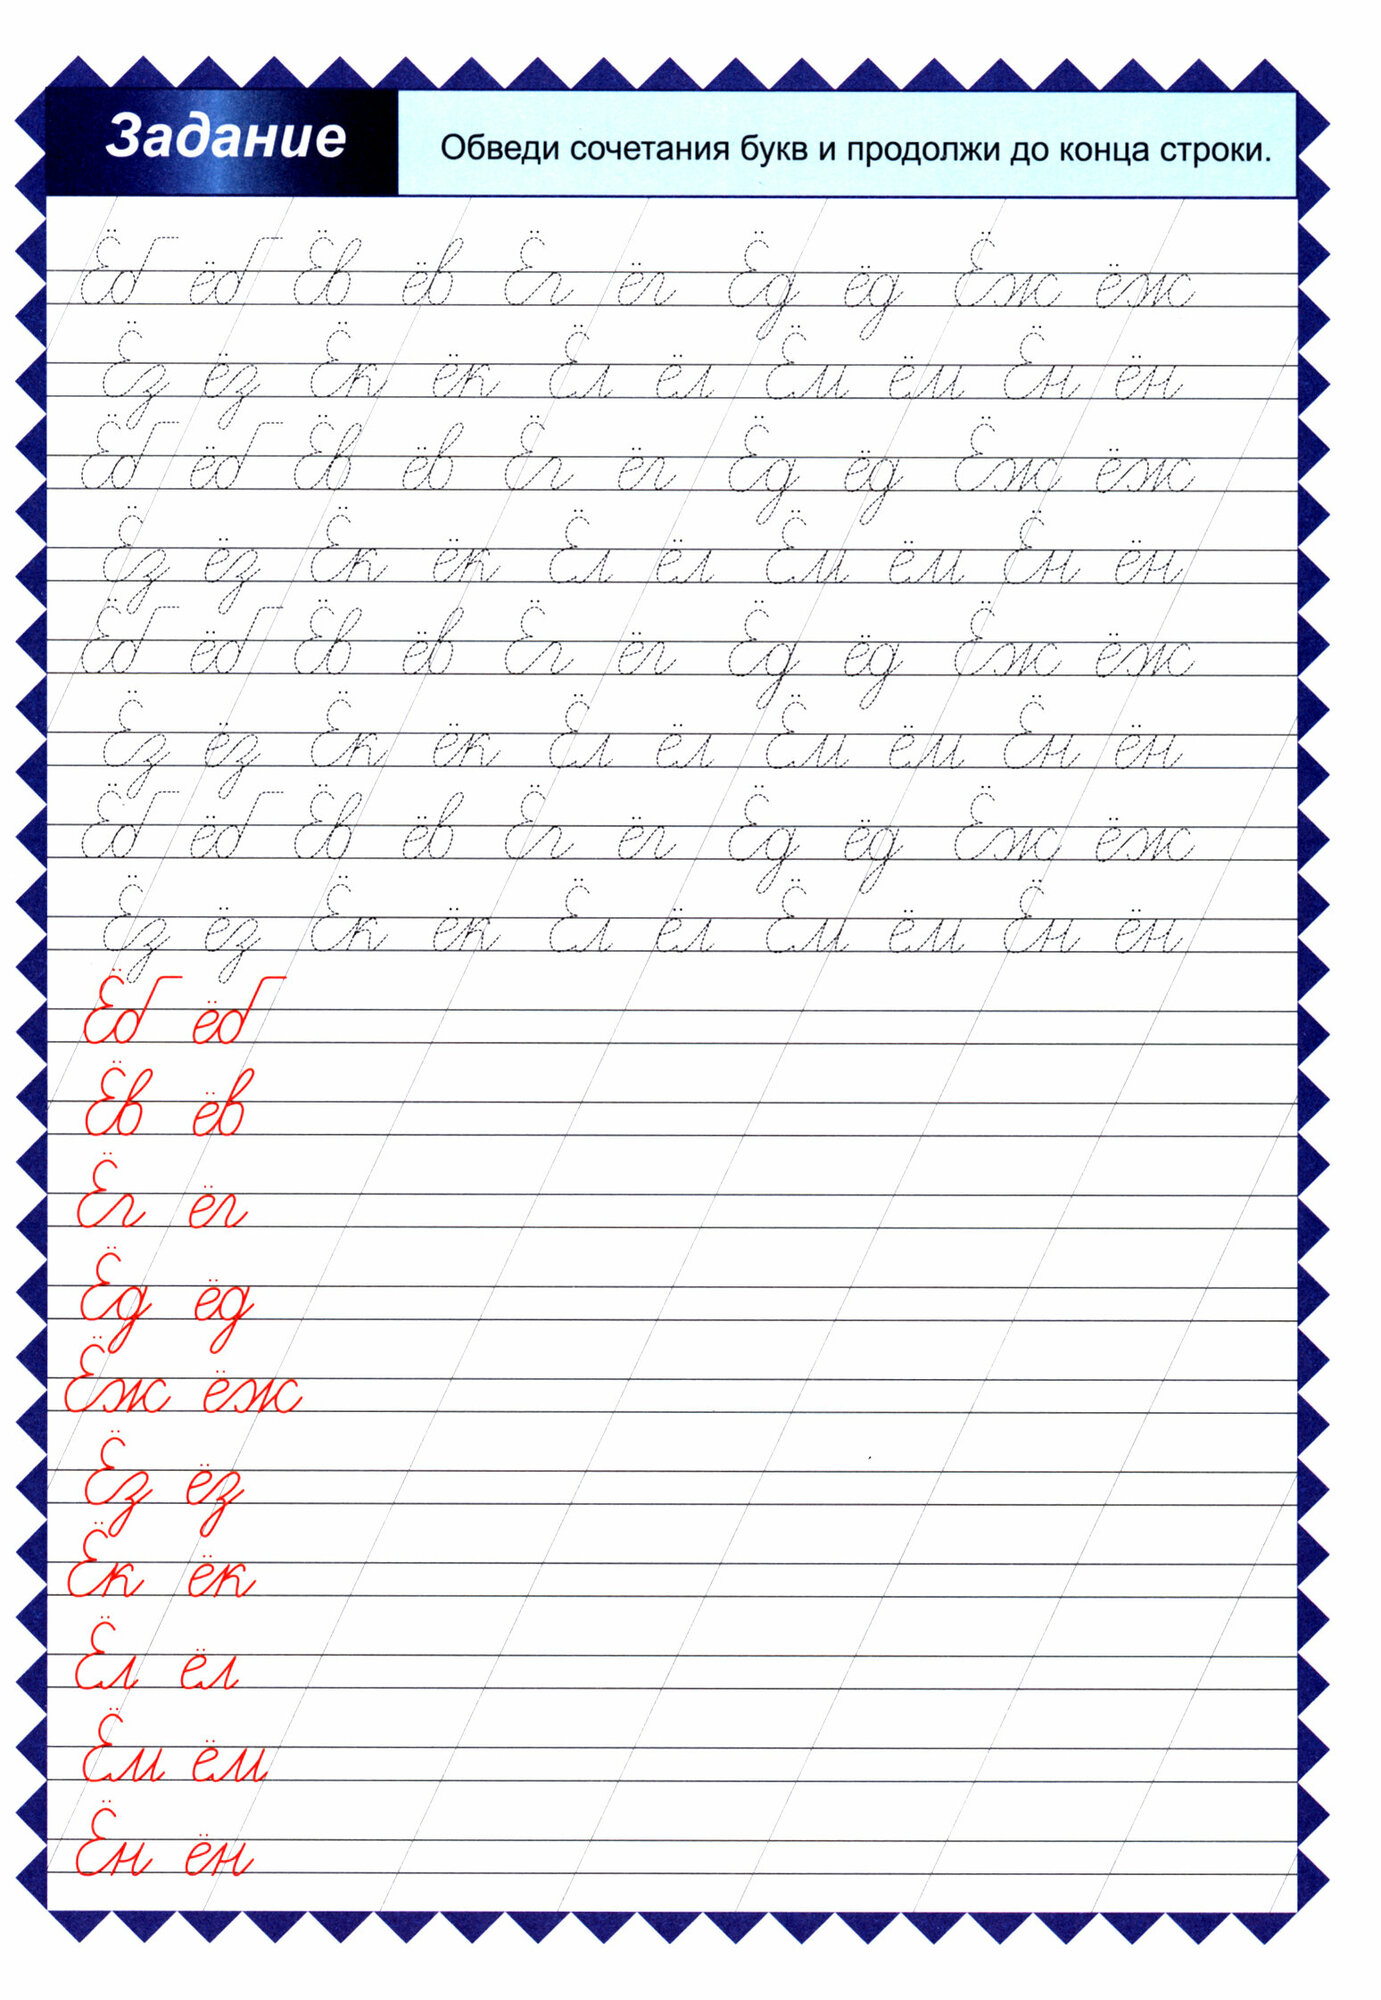 Задание
Обведи сочетания букв и продолжи до конца строки.
Ёб ёб Ёв ёв Ёг ёг Ёд ёд Ёж ёж
Ёз ёз Ёк ёк Ёл ёл Ём ём Ён ён
Ёб ёб Ёв ёв Ёг ёг Ёд ёд Ёж ёж
Ёз ёз Ёк ёк Ёл ёл Ём ём Ён ён
Ёб ёб Ёв ёв Ёг ёг Ёд ёд Ёж ёж
Ёз ёз Ёк ёк Ёл ёл Ём ём Ён ён
Ёб ёб Ёв ёв Ёг ёг Ёд ёд Ёж ёж
Ёз ёз Ёк ёк Ёл ёл Ём ём Ён ён
Ёб ёб
Ёв ёв
Ёг ёг
Ёд ёд
Ёж ёж
Ёз ёз
Ёк ёк
Ёл ёл
Ём ём
Ён ён